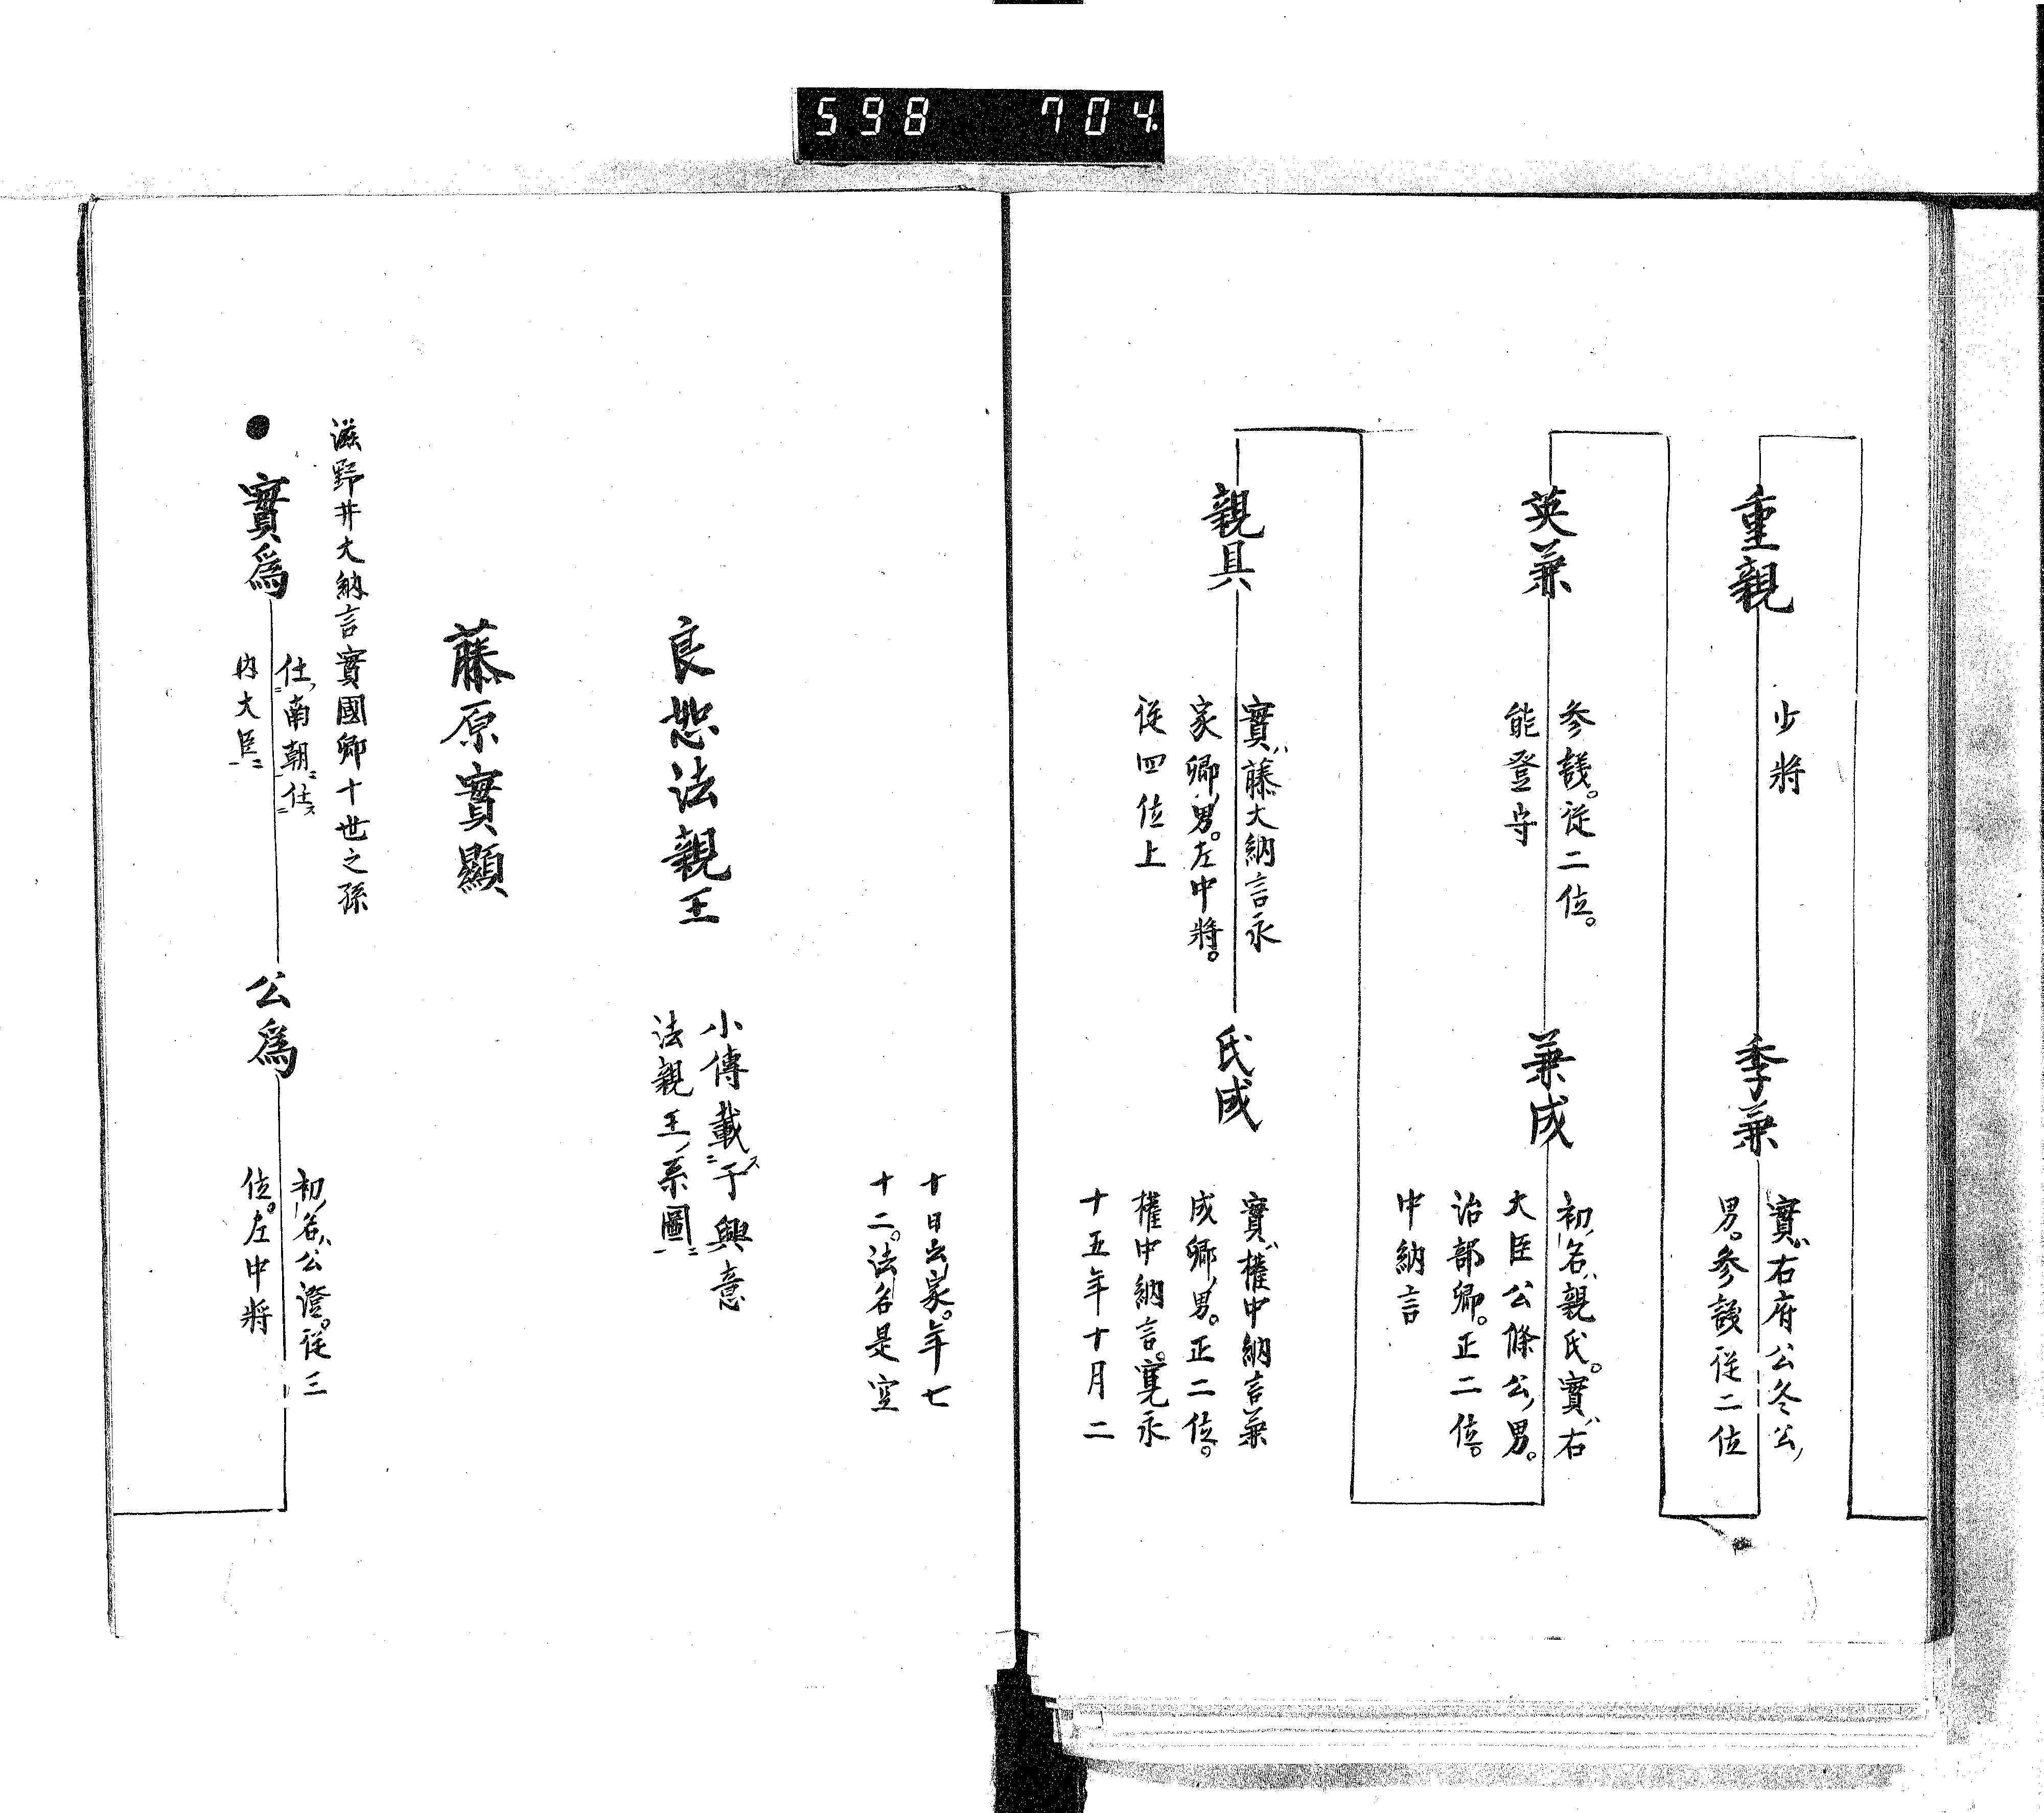 598 704
重親
少將
季兼
實ハ右府公冬公ノ
男。參議從二位
英兼
參議。從二位。
能登守
兼成
初ノ名ハ親氏。實ハ右
大臣公條公ノ男。
治部卿。正二位。
中納言
親具
實ハ藤大納言永
家卿ノ男。左中將。
從四位上
氏成
實ハ權中納言兼
成卿ノ男。正二位。
權中納言。寛永
十五年十月二
十日出家。年七
十二。法名是空
良恕法親王
小傳載ス于興意
法親王ノ系圖ニ
藤原實顯
滋野井大納言實國卿十世之孫
實爲
仕ヘ南朝ニ任ス
内大臣ニ
公爲
初ノ名ハ公澄。從三
位。左中將